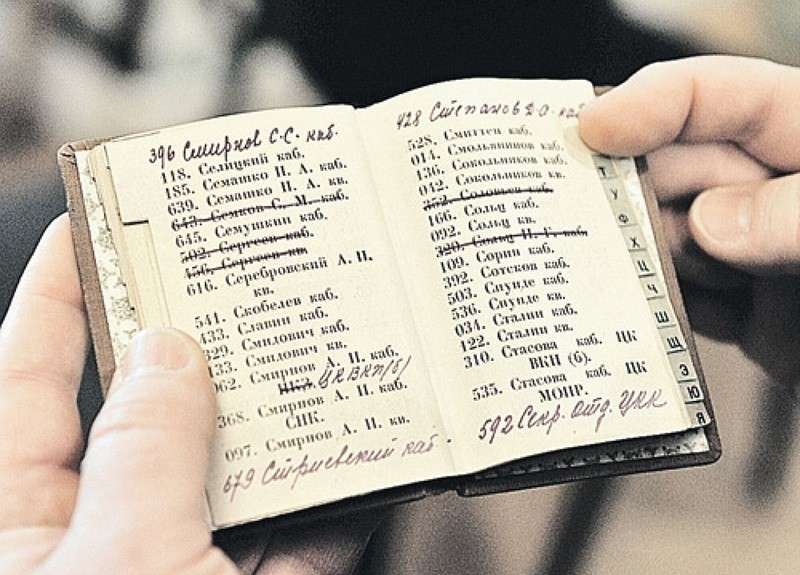 396 Смирнов С.С. каб.
118. Селицкий каб.
185. Семашко Н. А. каб.
639. Семашко Н. А. кв.
643. Семков С. М. каб.
645. Семушкин каб.
502. Сергеев каб.
456. Сергеев кв.
616. Серебровский А. П.
кв.
541. Скобелев каб.
433. Славин каб.
329. Смидович каб.
133. Смидович кв.
062. Смирнов А. П. каб.
ЦК ВКП(б)
368. Смирнов А. П. каб.
СНК.
097. Смирнов А. П. кв.
679 Стриевский каб.
428 Степанов Д.О. каб
528. Смиттен каб.
014. Смольянинов каб.
136. Сокольников каб.
042. Сокольников кв.
352. Соловьев каб.
166. Сольц каб.
092. Сольц кв.
320. Сольц И. Г. каб.
109. Сорин каб.
392. Сотсков каб.
503. Спундэ каб.
536. Спундэ кв.
034. Сталин каб.
122. Сталин кв.
310. Стасова каб. ЦК
ВКП (б).
535. Стасова каб. ЦК
МОПР.
592 Секр. отд. ЦКК
Т
У
Ф
Х
Ц
Ч
Ш
Щ
Э
Ю
Я